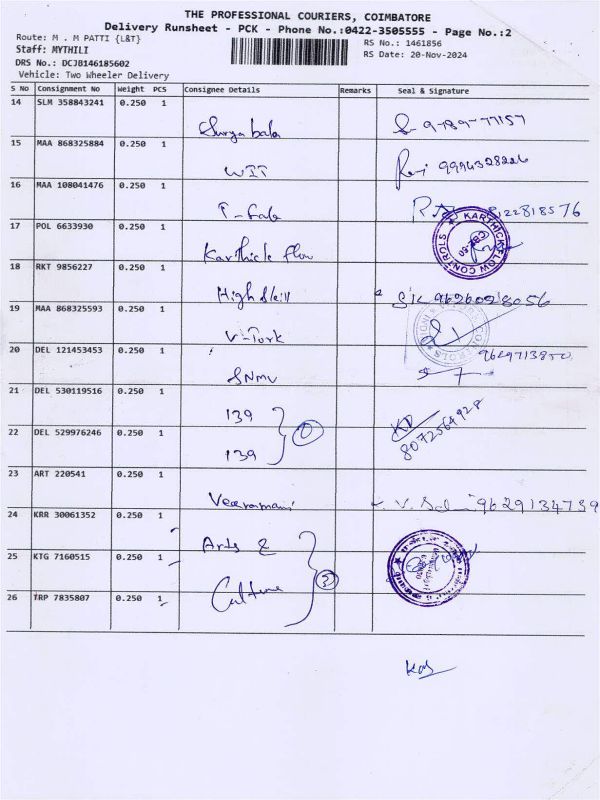 THE PROFESSIONAL COURIERS, COIMBATORE
Delivery Runsheet - PCK - Phone No.:0422-3505555 - Page No.:2
Route: M . M PATTI {L&T}
RS No.: 1461856
Staff: MYTHILI
RS Date: 20-Nov-2024
DRS No.: DCJB146185602
Vehicle: Two Wheeler Delivery
S No Consignment No Weight PCS Consignee Details Remarks Seal & Signature
14 SLM 358843241 0.250 1
Surya bala 9789-77157
15 MAA 868325884 0.250 1
WIT
16 MAA 108041476 0.250 1
T-Gab
17 POL 6633930 0.250 1
Karthick Flow
KARTHICK FLOW CONTROLS
18 RKT 9856227 0.250 1
High Skill
19 MAA 868325593 0.250 1
V-Turk
20 DEL 121453453 0.250 1
SNMV
21 DEL 530119516 0.250 1
139
8072564928
22 DEL 529976246 0.250 1
139
23 ART 220541 0.250 1
Veeramani 9629134739
24 KRR 30061352 0.250 1
Arts &
25 KTG 7160515 0.250 1
Culture 3
26 TRP 7835807 0.250 1